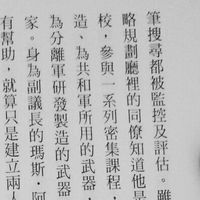 筆搜尋都被監控及評估。雖
略規劃廳裡的同僚知道他是
校，參與一系列密集課程，
造、為共和軍所用的武器，
為分離軍研發製造的武器
家。身為副議長的瑪斯·阿
有幫助，就算只是建立兩人